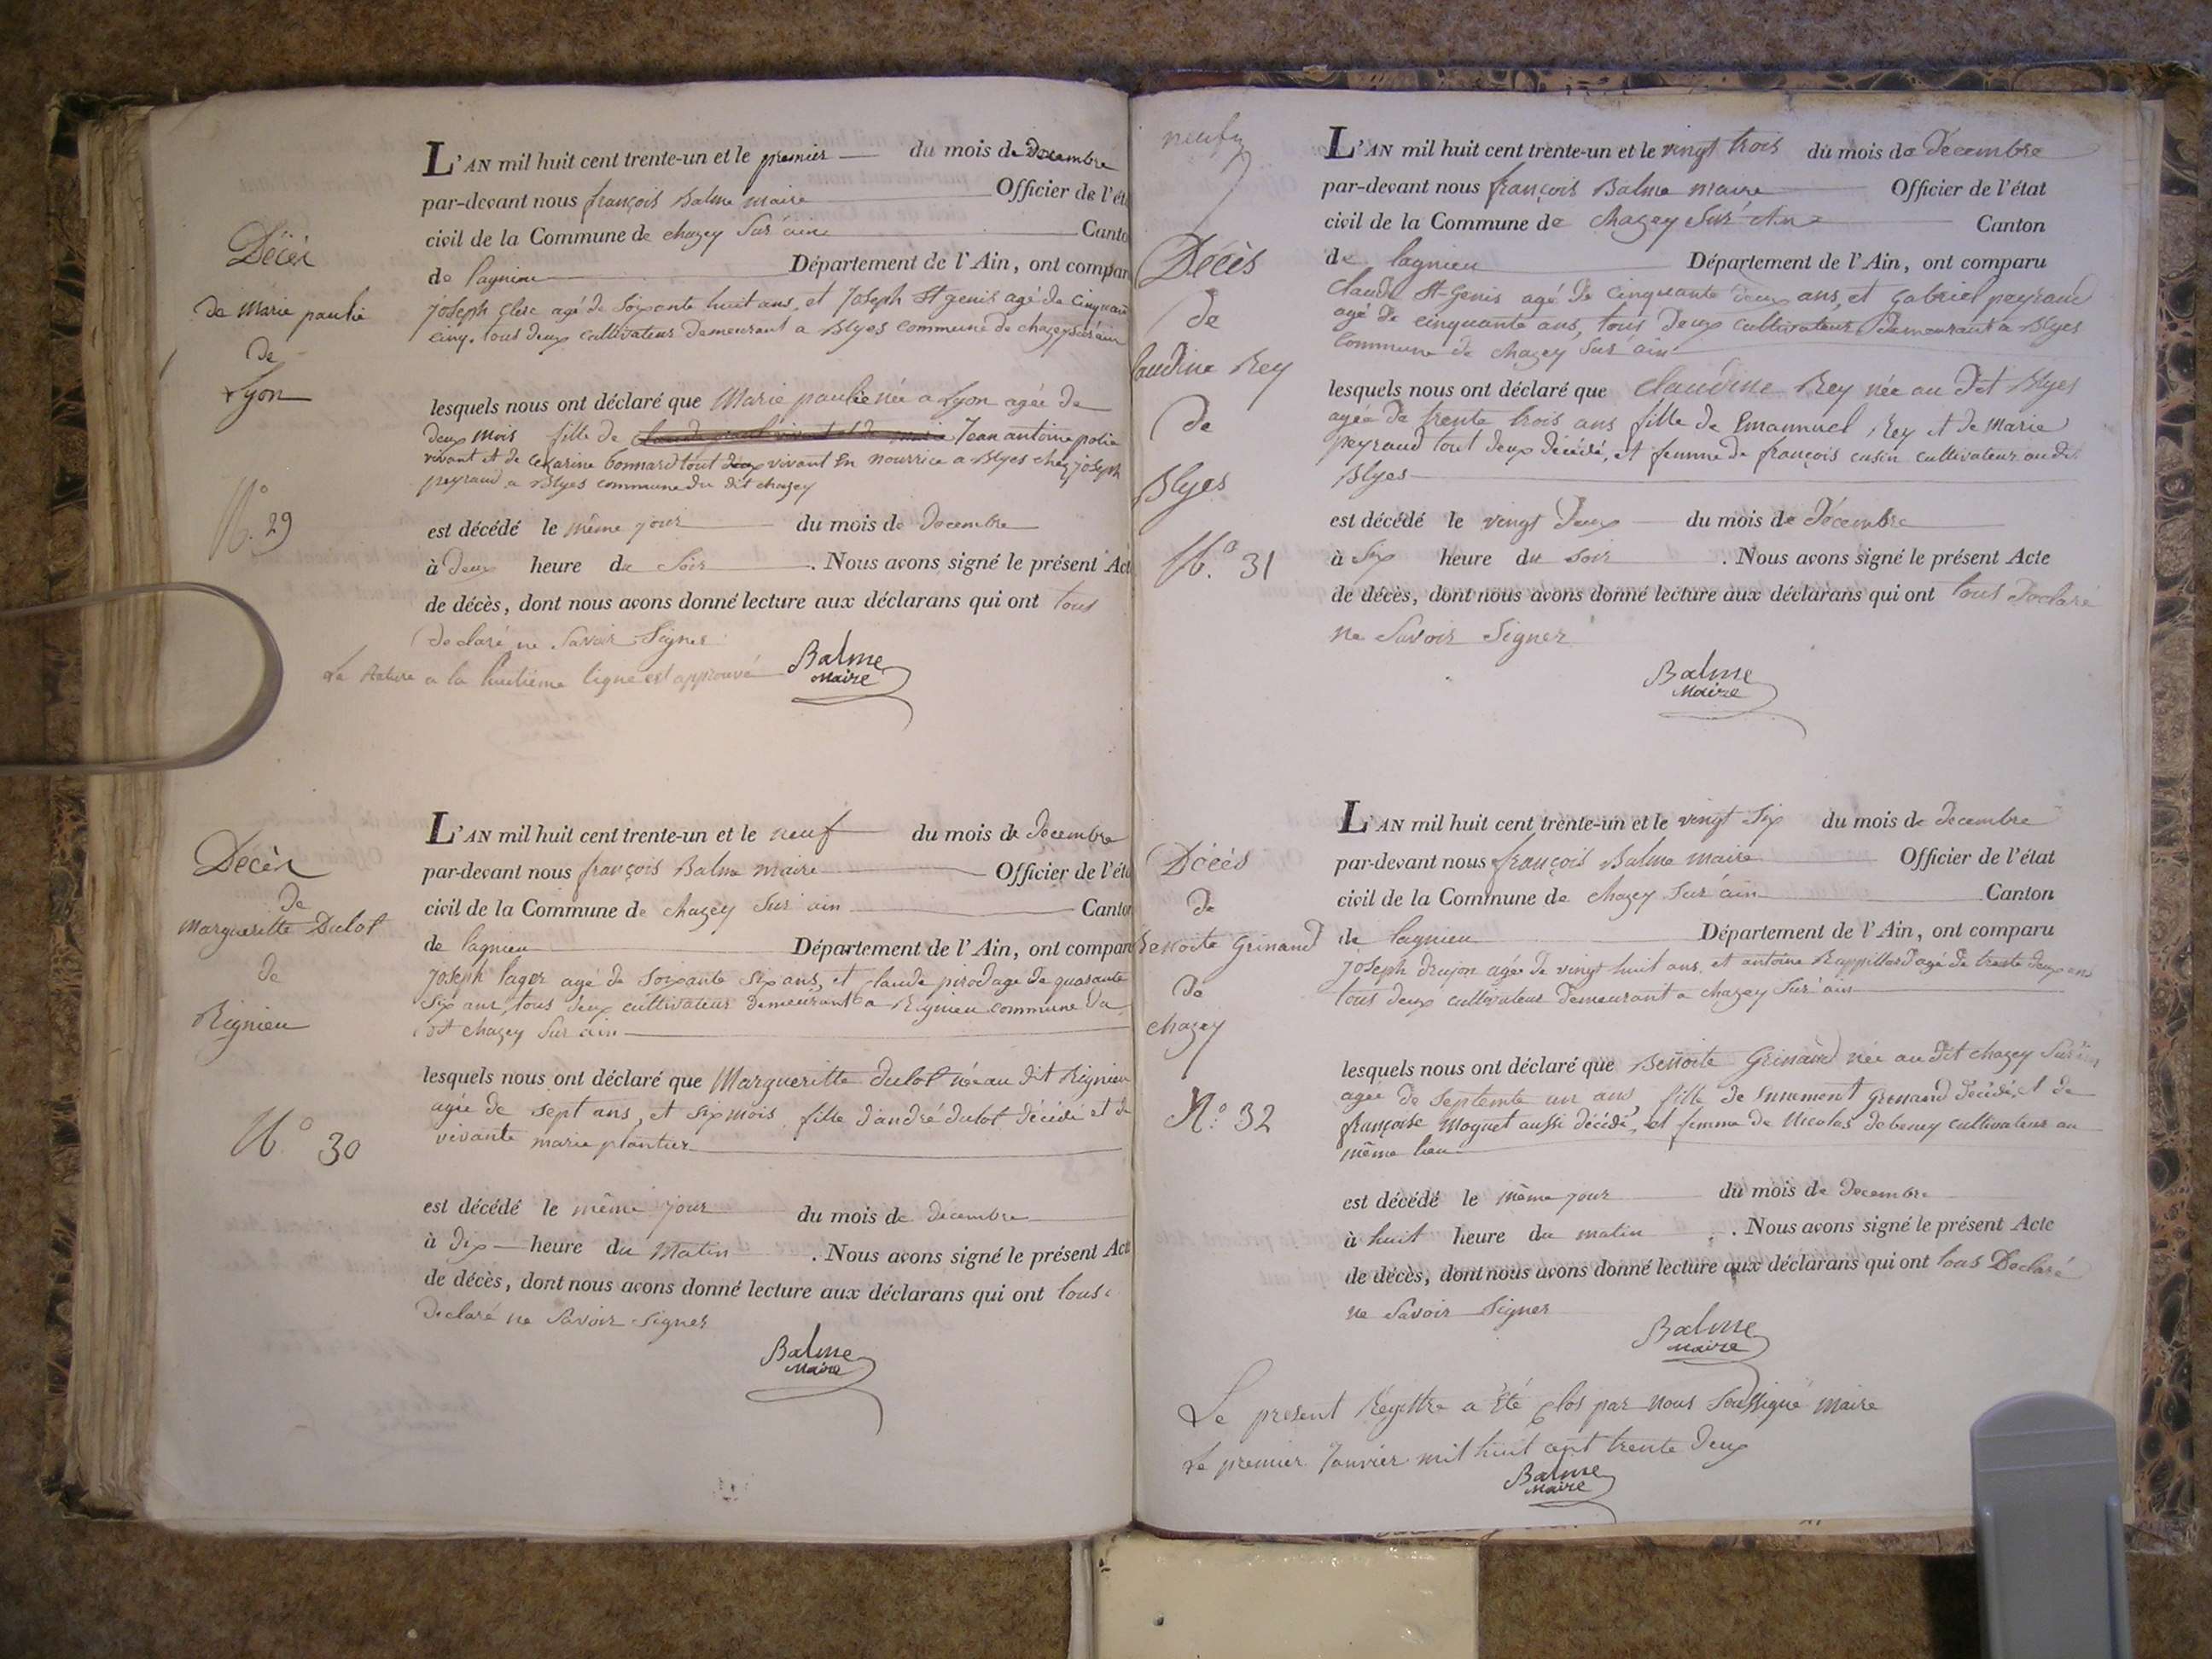 Décès
de Marie paulie
de
Lyon
N.° 29
L'AN mil huit cent trente-un et le premier du mois de Decembre
par-devant nous françois Balme maire Officier de l'éta
civil de la Commune de chazey Sur ain Canto
de lagnieu Département de l'Ain, ont compar
joseph Clerc agé de Soixante huit ans, et Joseph St genis agé de Cinquante
cinq. tous deux cultivateurs demeurant a Blyes commune de chazey Sur ain
lesquels nous ont déclaré que Marie paulie née a Lyon agée de
deux mois fille de Jean antoine
vivant et de bonnard tout deux vivant En nourrice a Blyes chez joseph
peyraud a Blyes commune du dit chazey
est décédé le même jour du mois de Decembre
à deux heure du Soir . Nous avons signé le présent Act
de décès, dont nous avons donné lecture aux déclarans qui ont tous
declaré ne Savoir Signer
La a la huitieme ligne est approuvé
Balme
Maire
Décès
de
Margueritte Dulot
de
Rignieu
N.° 30
L'AN mil huit cent trente-un et le neuf du mois de Decembre
par-devant nous françois Balme maire Officier de l'éta
civil de la Commune de chazey Sur ain Canton
de lagnieu Département de l'Ain, ont compar
Joseph lager agé de Soixante Six ans, et claude pirod age de quarante
Six ans, tous deux cultivateur demeurant a Rignieu commune du
dit chazey Sur ain
lesquels nous ont déclaré que Margueritte dulot née au dit Rignieu
agée de sept ans, et six mois fille d'andré dulot décédé et de
vivante marie plantier
est décédé le même jour du mois de decembre
à dix heure du Matin . Nous avons signé le présent Act
de décès, dont nous avons donné lecture aux déclarans qui ont tous
declaré ne Savoir Signer
Balme
Maire
neuf
Décès
de
laudine Rey
de
Blyes
N.° 31
L'AN mil huit cent trente-un et le vingt trois du mois de Décembre
par-devant nous françois Balme maire Officier de l'état
civil de la Commune de chazey Sur Ain Canton
de lagnieu Département de l'Ain, ont comparu
Claude St-Genis agé de cinquante deux ans, et Gabriel peyraud
agé de cinquante ans, tous deux cultivateurs demeurant a Blyes
Commune de chazey Sur ain
lesquels nous ont déclaré que Claudine Rey née au dit Blyes
agée de trente trois ans fille de Emannuel Rey et de Marie
peyraud tout deux décédé, et femme de françois cusin cultivateur au dit
Blyes
est décédé le vingt deux du mois de décembre
à Six heure du soir . Nous avons signé le présent Acte
de décès, dont nous avons donné lecture aux déclarans qui ont tous declaré
ne Savoir Signer
Balme
Maire
Décès
de
Benoite Grinand
de
chazey
N.° 32
L'AN mil huit cent trente-un et le vingt Six du mois de decembre
par-devant nous françois Balme maire Officier de l'état
civil de la Commune de chazey Sur ain Canton
de lagnieu Département de l'Ain, ont comparu
Joseph drujon agée de vingt huit ans, et antoine Rappillard agé de trente deux ans
tous deux cultivateur demeurant a chazey Sur ain
lesquels nous ont déclaré que Benoite Grinand née au dit chazey Sur ain
agée de Septente un ans, fille de Grinand décédé, et de
françoise Moguet aussi décédé, et femme de Nicolas debeney cultivateur au
même lieu
est décédé le même jour du mois de decembre
à huit heure du matin . Nous avons signé le présent Acte
de décès, dont nous avons donné lecture aux déclarans qui ont tous Declaré
ne Savoir Signer
Balme
Maire
Le present Regittre a été Clos par nous Soussigné maire
Le premier Janvier mil huit cent trente deux
Balme
Maire